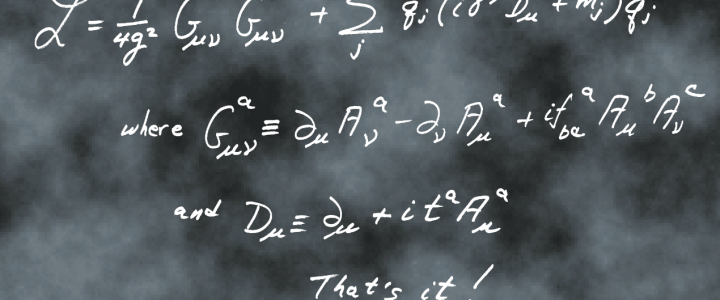 ℒ = 1/4g² G_μν G_μν + ∑_j q̄_j (iγ^μ D_μ + m_j) q_j
where G^a_μν ≡ ∂_μ A^a_ν − ∂_ν A^a_μ + if^a_bc A^b_μ A^c_ν
and D_μ ≡ ∂_μ + it^a A^a_μ
That's it!